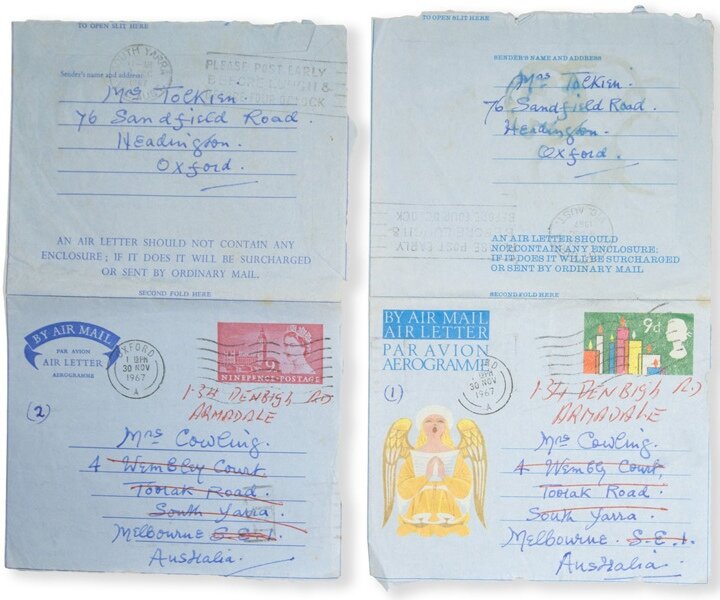 TO OPEN SLIT HERE
SOUTH YARRA
PLEASE POST EARLY
BEFORE
O'CLOCK
Sender's name and address:
Mrs Tolkien.
76 Sandfield Road.
Headington.
Oxford.
AN AIR LETTER SHOULD NOT CONTAIN ANY
ENCLOSURE; IF IT DOES IT WILL BE SURCHARGED
OR SENT BY ORDINARY MAIL.
SECOND FOLD HERE
BY AIR MAIL
PAR AVION
AIR LETTER
AEROGRAMME
OXFORD
30 NOV
1967
A
NINEPENCE·POSTAGE
(2)
134 DENBIGH RD
ARMADALE
Mrs Cowling.
4 Wembley Court,
Toorak Road.
South Yarra.
Melbourne S.E.1.
Australia.
TO OPEN SLIT HERE
SENDER'S NAME AND ADDRESS
Mrs Tolkien.
76 Sandfield Road.
Headington.
Oxford.
BEFORE YOUR
POST EARLY
AN AIR LETTER SHOULD
NOT CONTAIN ANY ENCLOSURE;
IF IT DOES IT WILL BE SURCHARGED
OR SENT BY ORDINARY MAIL
SECOND FOLD HERE
BY AIR MAIL
AIR LETTER
PAR AVION
AEROGRAMME
30 NOV
1967
A
9d
(1)
134 DENBIGH RD
ARMADALE
Mrs Cowling.
4 Wembly Court,
Toorak Road.
South Yarra.
Melbourne. S.E.1.
Australia.